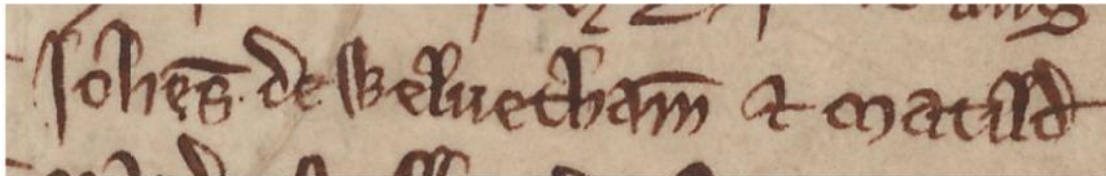 Joh̄es de Weluetham̄ & Matild̄